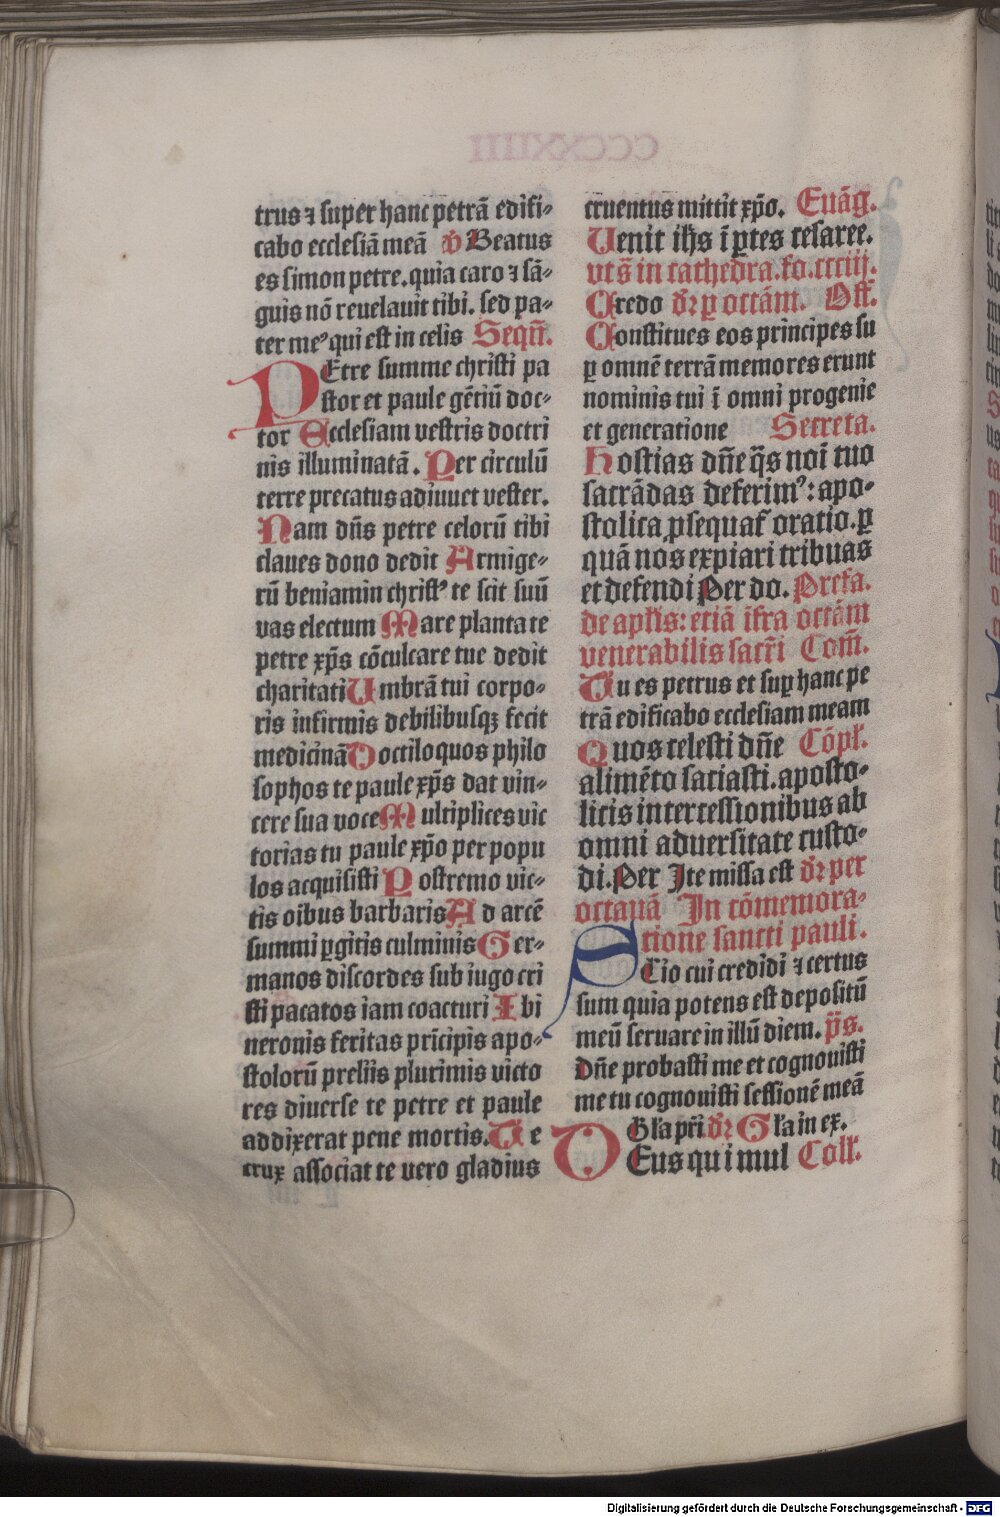 trus ⁊ super hanc petrā edifi-
cabo ecclesiā meā ℣ Beatus
es simon petre. quia caro ⁊ sā-
guis nō reuelauit tibi. sed pa-
ter meꝰ qui est in celis Sequn̄.
PEtre summe christi pa
stor et paule gētiū doc-
tor Ecclesiam vestris doctri
nis illuminatā. Per circulū
terre precatus adiuuet vester.
Nam dn̄s petre celorū tibi
claues dono dedit Armige-
rū beniamin christꝰ te scit suū
vas electum Mare planta te
petre xp̄s cōculcare tue dedit
charitati Umbrā tui corpo-
ris infirmis debilibusqꝫ fecit
medicinā Doctiloquos philo
sophos te paule xp̄s dat vin-
cere sua voce Multiplices vic
torias tu paule xp̄o per popu
los acquisisti Postremo vic-
tis oībus barbaris Ad arcē
summi ꝑgitis culminis Ger-
manos discordes sub iugo cri
sti pacatos iam coacturi Ibi
neronis feritas prīcipis apo-
stolorū preliis plurimis victo
res diuerse te petre et paule
addixerat pene mortis. Te
crux associat te vero gladius
cruentus mittit xp̄o. Euāg.
Venit ih̄s ī ꝑtes cesaree.
vts̄ in cathedra. fo. ccciij.
Credo dr̄ ꝑ octām. Off̄.
Constitues eos principes su
ꝑ omnē terrā memores erunt
nominis tui ī omni progenie
et generatione Secreta.
Hostias dn̄e q̄s noī tuo
sacrādas deferimꝰ: apo-
stolica ꝓsequat̄ oratio. ꝑ
quā nos expiari tribuas
et defendi Per do. Prefa.
de apl̄is: etiā īfra octām
venerabilis sacr̄i Com̄.
Tu es petrus et suꝑ hanc pe
trā edificabo ecclesiam meam
Quos celesti dn̄e Cōpl̄.
alimēto saciasti. aposto-
licis intercessionibus ab
omni aduersitate custo-
di. Per Ite missa est dr̄ per
octauā In cōmemora-
tione sancti pauli.
SCio cui credidi ⁊ certus
sum quia potens est depositū
meū seruare in illū diem. p̄s.
Dn̄e probasti me et cognouisti
me tu cognouisti sessionē meā
Gl̄a pr̄i dr̄ Gl̄a in ex.
DEus qui mul Coll̄.
CCCXXIIII
Digitalisierung gefördert durch die Deutsche Forschungsgemeinschaft - DFG